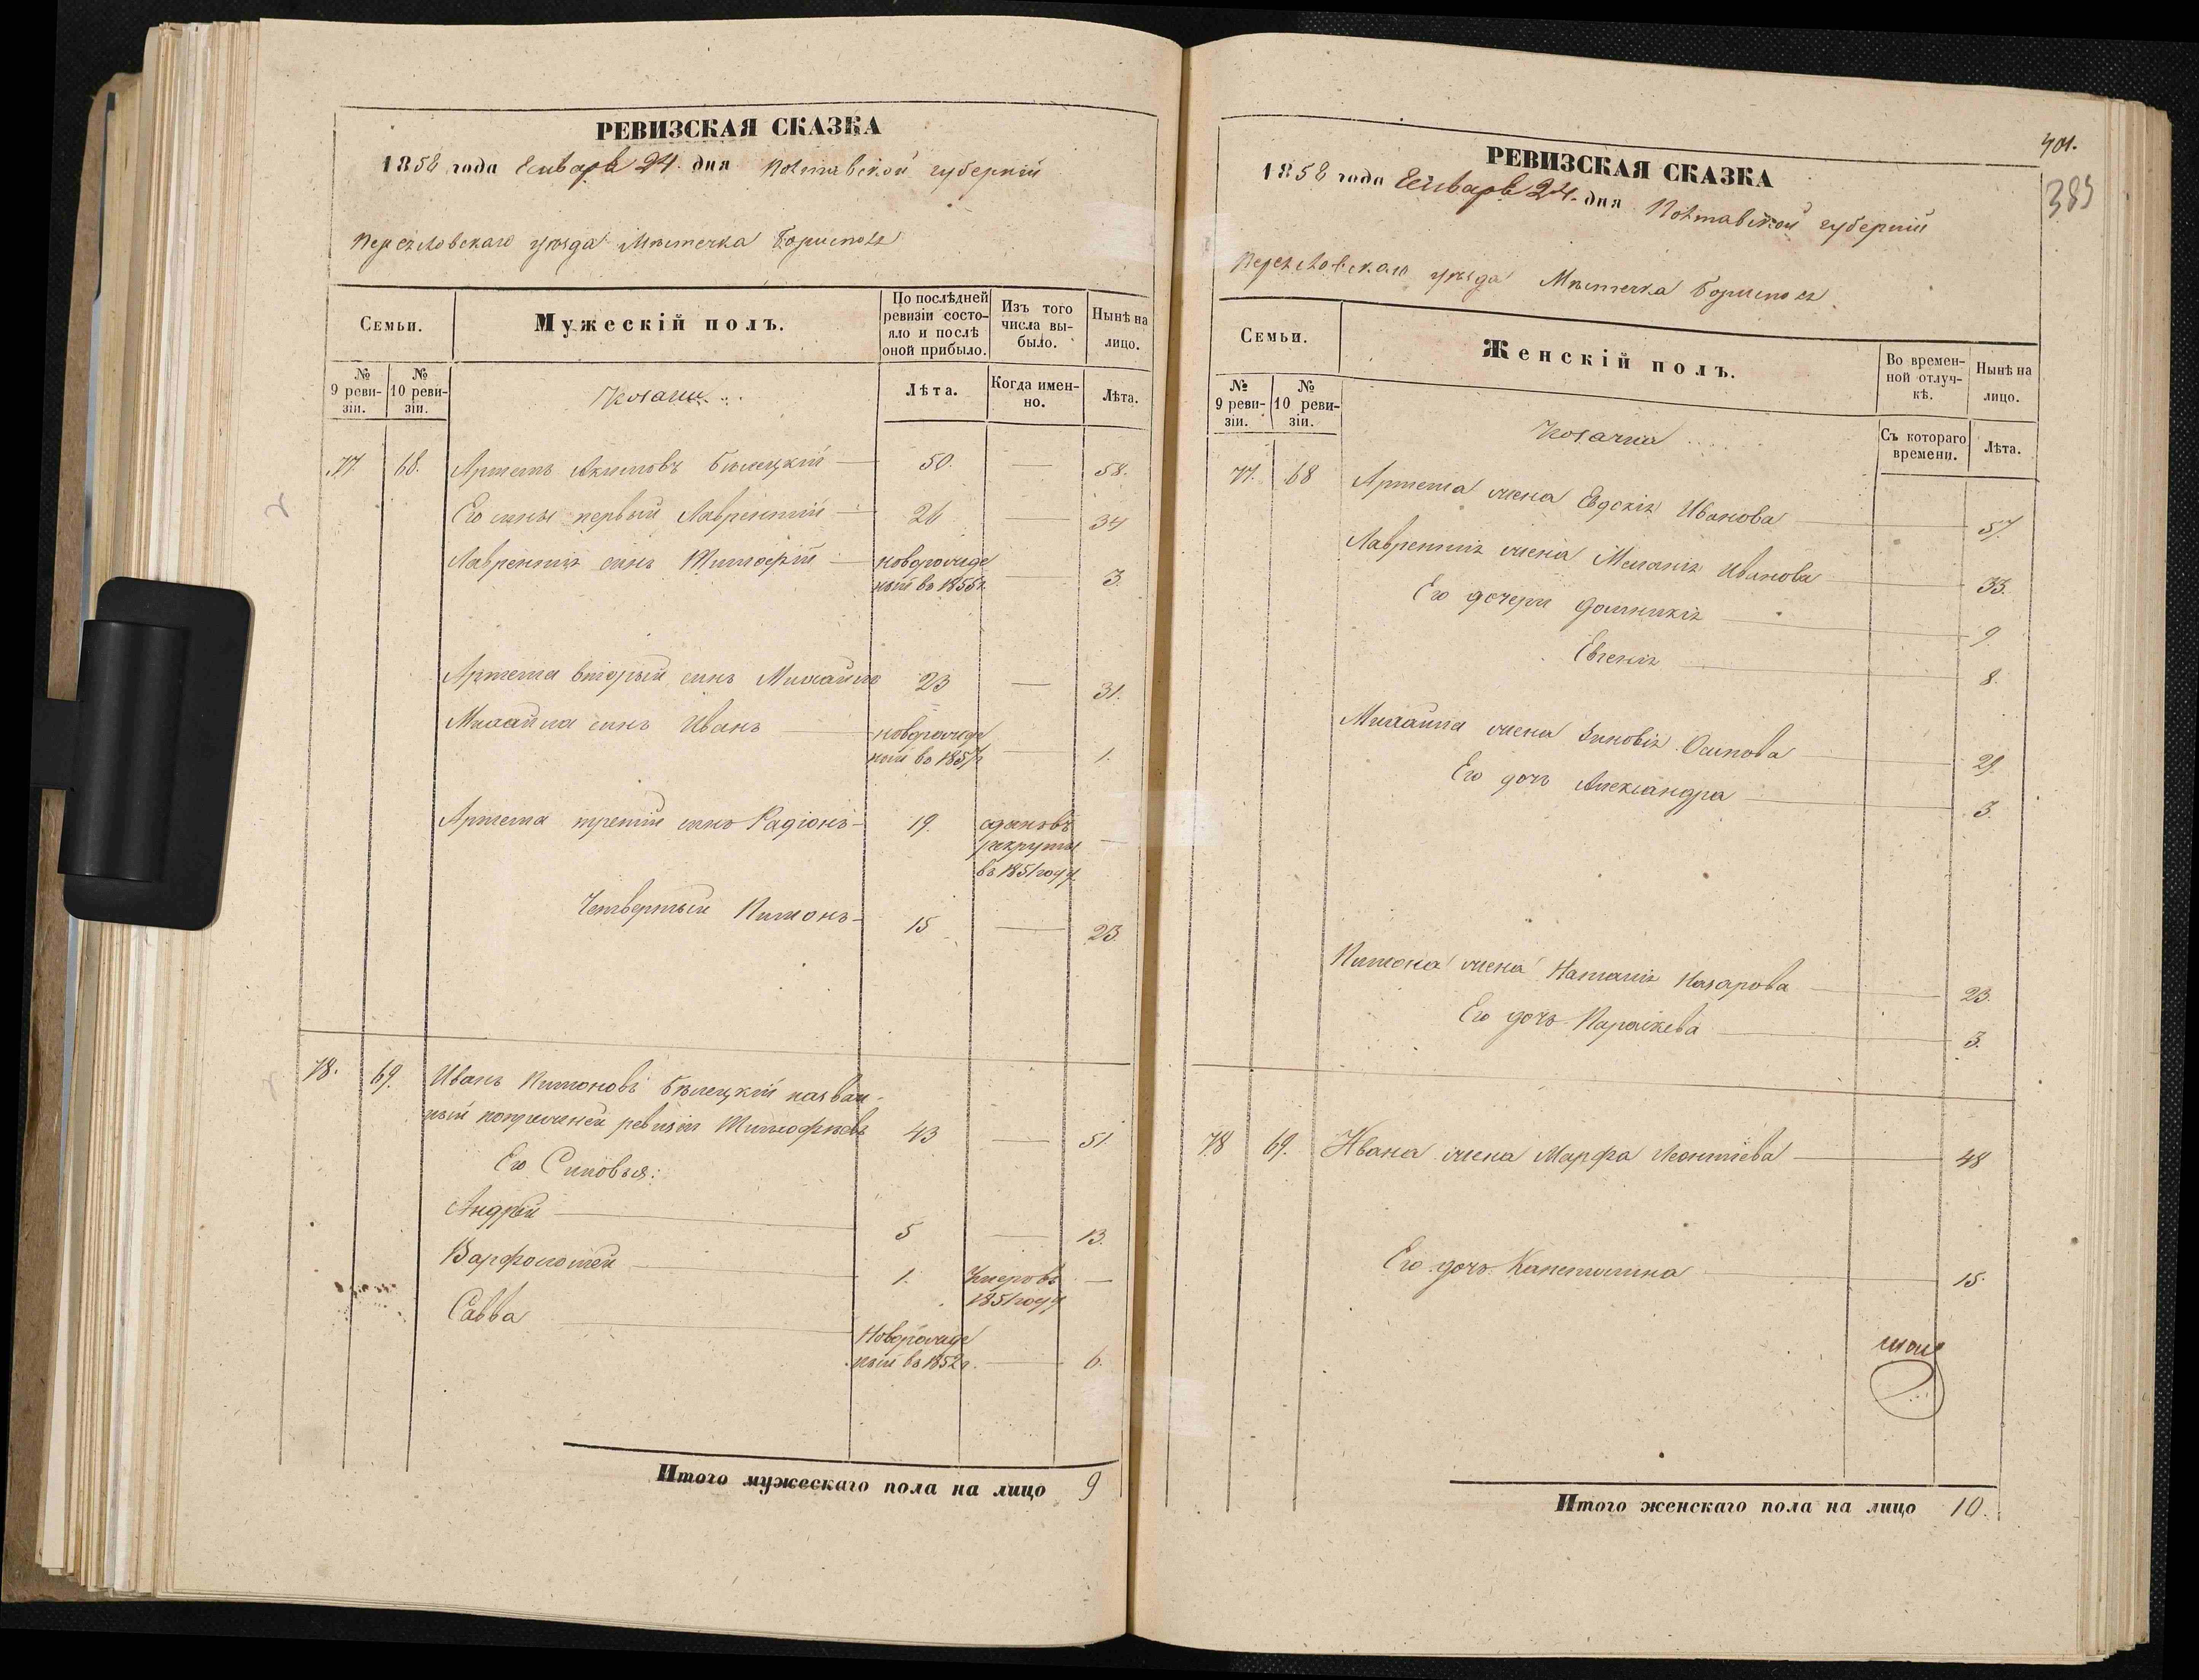 РЕВИЗСКАЯ СКАЗКА
1858 года Генваря 24. дня Полтавской губерніи
Переяславскаго уѣзда Мѣстечка Борисполя
Семьи.
Мужескій полъ.
По послѣдней ревизіи состо-
яло и послѣ
оной прибыло.
Изъ того
числа вы-
было.
Нынѣ на
лицо.
№
9 реви-
зіи.
№
10 реви-
зіи.
Козаки
Лѣта.
Когда имен-
но.
Лѣта.
77. 68. Артемъ Акимовъ Бѣлецкій 50. — 58.
Его сины первый Лаврентій 26 — 34
Лаврентія синъ Тимофѣй новорожде
ный въ 1855 г. — 3.
Артема вторый синъ Михайло 23 — 31.
Михайла синъ Иванъ новорожде
ный въ 1857 г — 1.
Артема третій синъ Радіонъ 19. сданъ въ
рекруты
въ 1851 году —
Четвертый Пимонъ 15 — 23.
78. 69. Иванъ Пимоновъ Бѣлецкій назван-
ный попрежней ревизіи Тимофѣевъ 43 — 51
Его Синовья:
Андрей 5 — 13.
Варфоломей 1. Умеръ въ
1851 году —
Савва Новорожде
ный въ 1852 г. — 6.
Итого мужескаго пола на лицо 9
401.
385
РЕВИЗСКАЯ СКАЗКА
1858 года Генваря 24. дня Полтавской губерніи
Переяславскаго уѣзда Мѣстечка Борисполя
Семьи.
Женскій полъ.
Во времен-
ной отлуч-
кѣ.
Нынѣ на
лицо.
№
9 реви-
зіи.
№
10 реви-
зіи.
Козачки
Съ котораго
времени.
Лѣта.
77. 68 Артема жена Евдокія Иванова 57.
Лаврентія жена Меланія Иванова 33.
Его дочери Домникія 9
Евгенія 8.
Михайла жена Зиновія Осипова 29.
Его дочь Александра 3.
Пимона жена Наталія Назарова 23.
Его дочь Параскева 3.
78 69. Ивана жена Марфа Леонтіева 48
Его дочь Капетолина 15.
Итого женскаго пола на лицо 10.